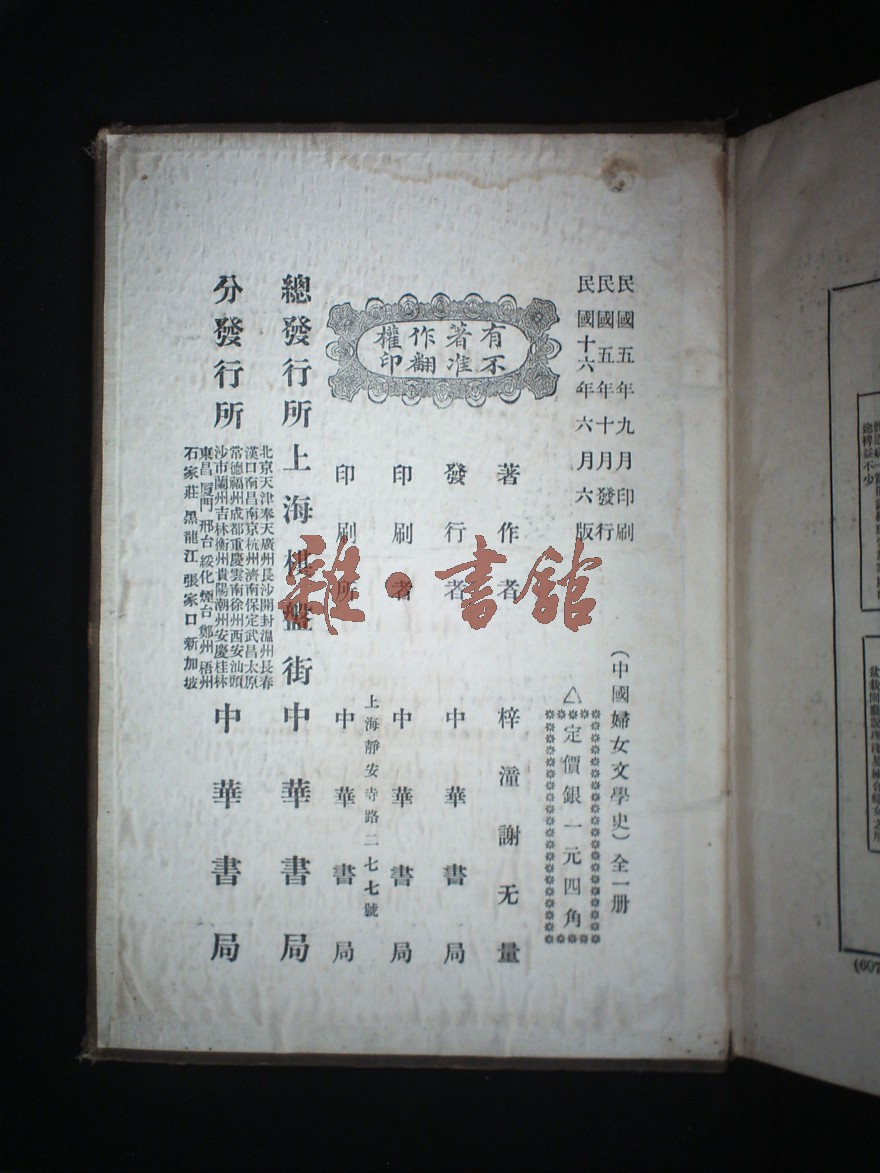 民國五年九月印刷
民國五年十月發行
民國十六年六月六版
(中國婦女文學史)全一册
△定價銀一元四角
著作者 梓潼謝无量
發行者 中華書局
印刷者 中華書局
上海靜安寺路二七七號
印刷所 中華書局
有不
著准
作翻
權印
總發行所 上海棋盤街 中華書局
分發行所
北京天津奉天廣州長沙開封溫州長春
漢口南昌南京杭州濟南保定武昌太原
常德福州成都重慶雲南徐州西安汕頭
沙市蘭州吉林衡州貴陽潮州安慶桂林
東昌厦門邢台綏化烟台鄭州梧州
石家莊黑龍江張家口新加坡
中華書局
雜·書舘
(607